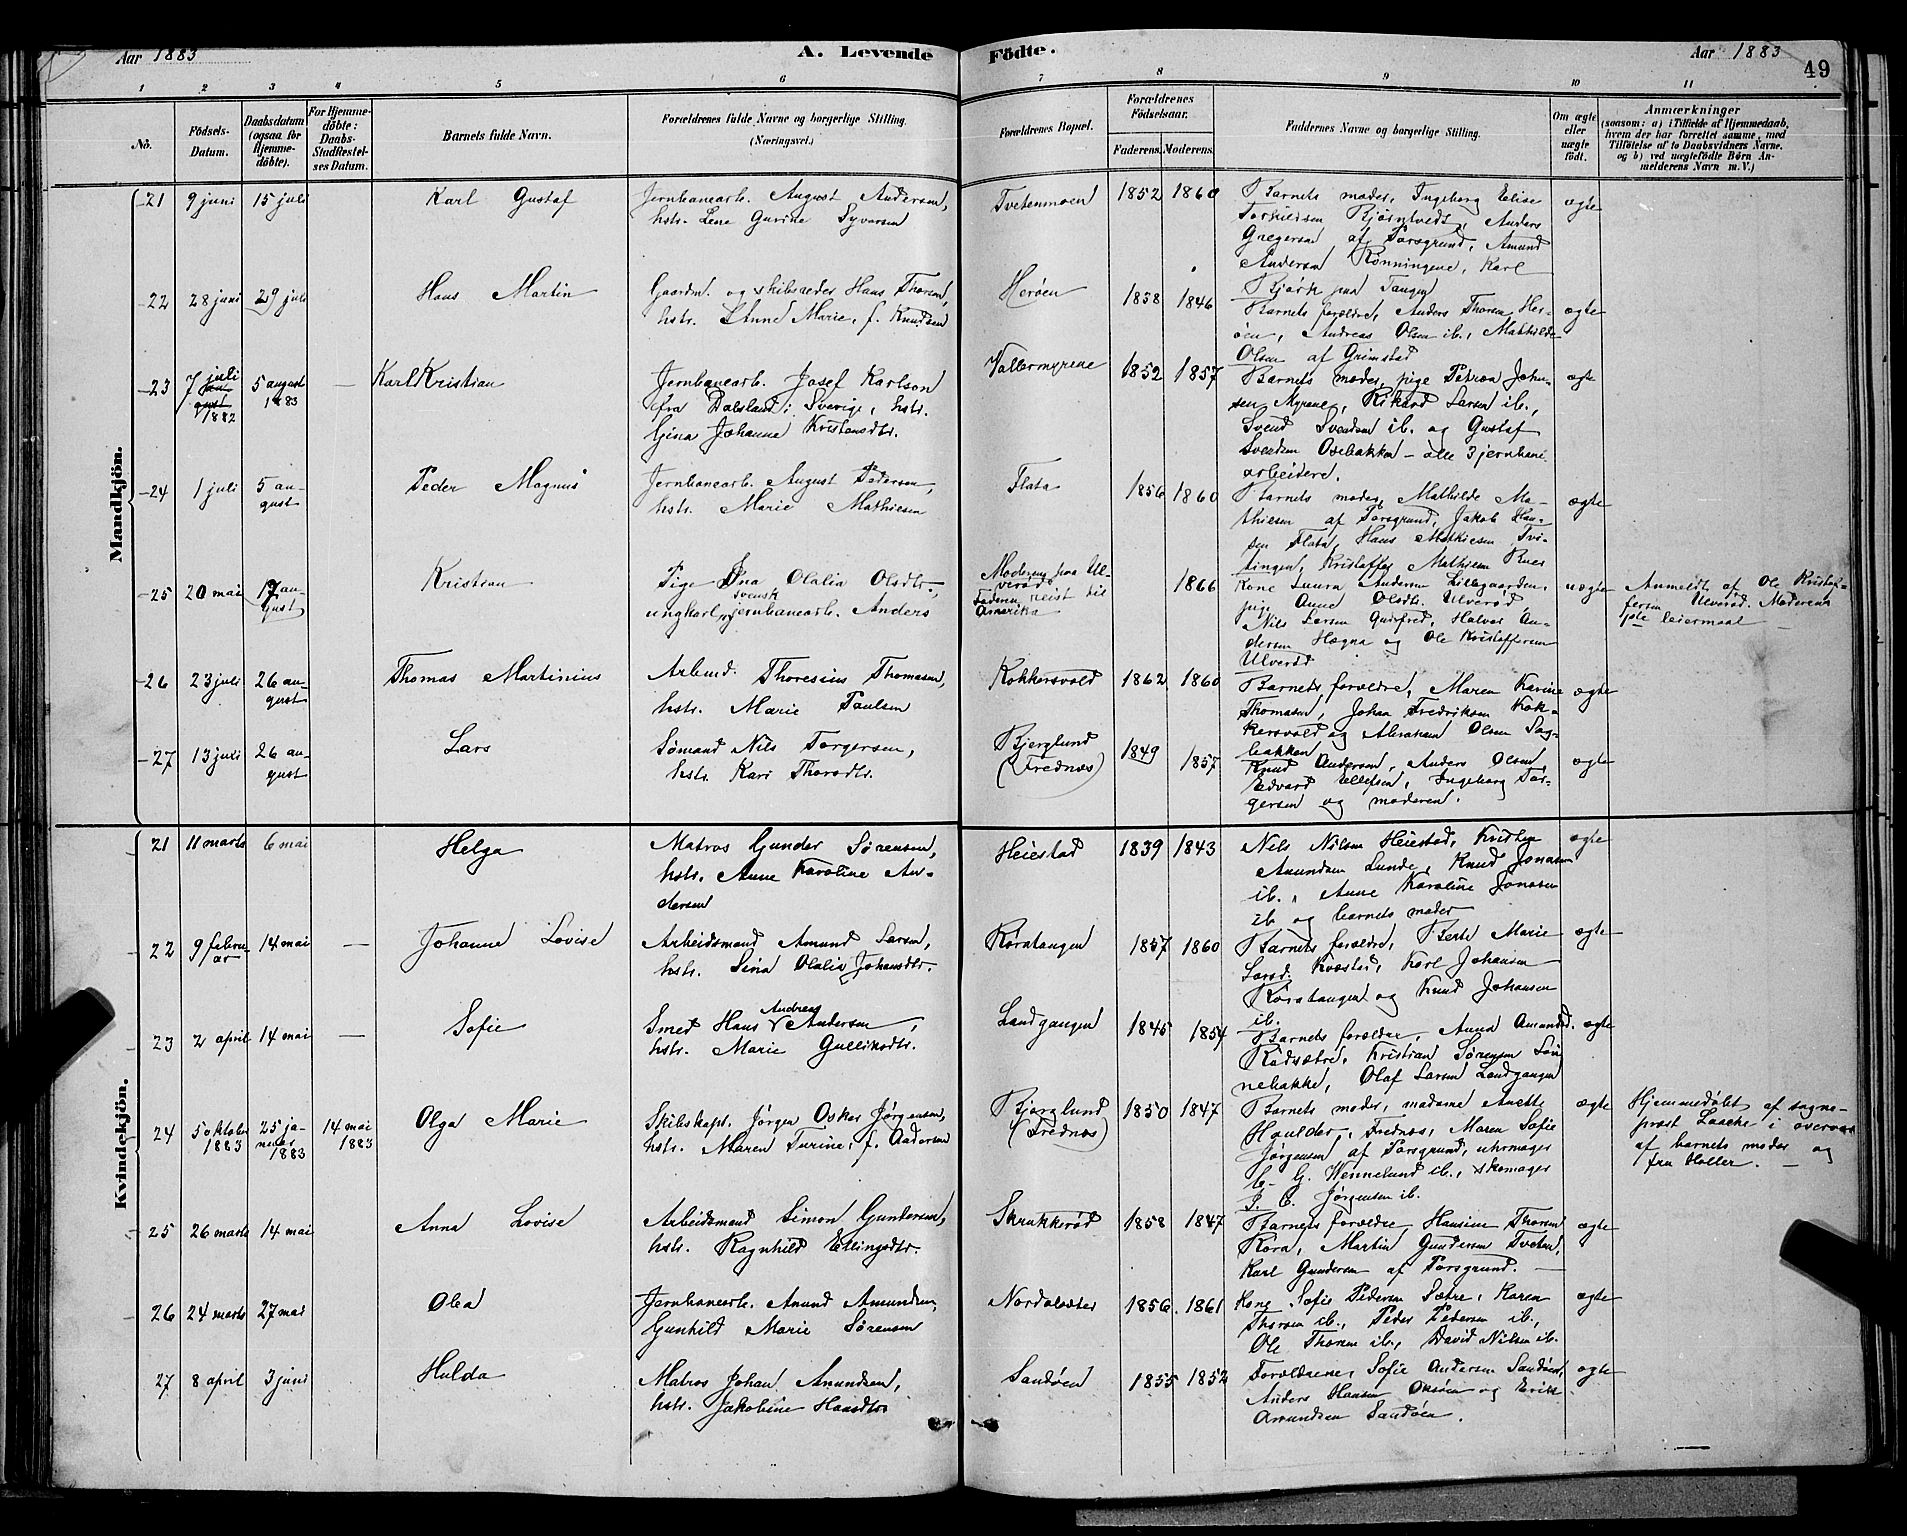 Aar 1883
A. Levende Födte.
Aar 1883
49
1 2 3 4 5 6 7 8 9 10 11
No.
Födsels-
Datum.
Daabsdatum
(ogsaa for
Hjemme-
döbte).
For Hjemme-
döbte:
Daabs-
Stadfestel-
ses Datum.
Barnets fulde Navn.
Forældrenes fulde Navne og borgerlige Stilling.
(Næringsvei.)
Forældrenes Bopæl.
Forældrenes
Födselsaar.
Faderens. Moderens.
Faddernes Navne og borgerlige Stilling.
Om ægte
eller
uægte
født.
Anmærkninger
(saasom: a) i Tilfælde af Hjemmedaab,
hvem der har forrettet samme, med
Tilföielse af to Daabsvidners Navne,
og b) ved uægtefödte Börn An-
melderens Navn m. V.)
Mandkjön.
21 9 juni 15 juli
Karl Gustaf
Jernbanearb. August Andersen,
hstr. Lene Gurine Syversen
Tvetenmoen
1852 1860
Barnets moder, Ingeborg Elise
Bjørntvedt, Anders
Gregersen af Porsgrund, Amund
Andersen Rønningene, Karl
Bjørk paa Tangen
ægte
22 28 juni 29 juli
Hans Martin
Gaardm. og skibsreder Hans Thorsen,
hstr. Anne Marie, f. Knudsen
Herøen
1858 1846
Barnets forældre, Anders Thorsen Her-
øen, Andreas Olsen ib., Mathilde
Olsen af Grimstad
ægte
23 7 juli
au
gust
1882
5 august
1883
—
Karl Kristian
Jernbanearb. Josef Karlson
fra Dalsland i Sverige, hstr.
Gina Johanne Kristensdtr.
Vallermyrene
1852 1857
Barnets moder, pige Petrea John-
sen Myrene, Rikard Larsen ib.,
Svend Svendsen ib. og Gustaf
Svendsen Osebakken – alle 3 jernbane-
arbeidere.
ægte
24 1 juli 5 au-
gust
Peder Magnus
Jernbanearb. August Pedersen,
hstr. Marie Mathisen
Flata
1856 1860
Barnets moder, Mathilde Ma-
thiesen af Porsgrund, Jakob Han-
sen Flata, Hans Mathiesen Tvi-
tingen, Kristoffer Mathisen
ægte
25 20 mai 17 au-
gust
Kristian
Pige Ina Olalia Olsdtr.,
svensk
ungkarl, jernbanearb. Anders
Moderen paa Ul-
verød
Faderen reist til
Amerika
1866
Kone Laura Andersen Lillegaarden,
pige Anne Olsdtr. Ulverød,
Nils Larsen, Halvor An-
dersen Hægna og Ole Kristoffersen
Ulverød
uægte
Anmeldt af Ole Kristof-
fersen Ulverød. Moderens
1ste leiermaal —
26 23 juli 26 au-
gust
Thomas Martinius
Arbmd. Thoresius Thomasen,
hstr. Marie Paulsen
Kokkersvold
1862 1860
Barnets forældre, Maren Karine
Thomasen, Johan Fredriksen Kok-
kersvold og Abraham Olsen Sag-
bakken
ægte
27 13 juli 26 au-
gust
Lars
Sømand Nils Torgersen,
hstr. Kari Thorsdtr.
Bjerglund
(Frednæs)
1849 1857
Knud Andersen, Anders Olsen,
Edvard Ellefsen, Ingeborg Tor-
gersen og moderen.
ægte
Kvindekjön.
21 11 marts 6 mai
Helga
Matros Gunder Sørensen,
hstr. Anne Karoline An-
dersen
Heiestad
1839 1843
Nels Nilsen Heiestad, Kristen
Amundsen Lunde, Knud Jonasen
ib., Anne Karoline Jonasen
ib og barnets moder
ægte
22 9 febru-
ar
14 mai —
Johanne Lovise
Arbeidsmand Amund Larsen,
hstr. Sina Olalia Johansdtr.
Røratangen
1857 1860
Barnets forældre, Berte Marie
Larsd. Kvæstad, Karl Johansen
Røratangen og Knud Johansen
ib.
ægte
23 2 april 14 mai —
Sofie
Andreas
Smed Hans Andersen,
hstr. Marie Gulliksdtr.
Landgangen
1845 1854
Barnets forældre, Anna Amundsd.
Rødsætre, Kristian Sørensen Søn
nebakke, Olaf Larsen Landgangen
ægte
24 5 oktober
1883
25 ja-
nuar
1883
14 mai
1883
Olga Marie
Skibskapt. Jørgen Oskar Jørgensen,
hstr. Maren Turine, f. Andersen
Bjerglund
(Frednæs)
1850 1847
Barnets moder, madame Anette
Houlder, Frednæs, Maren Sofie
Jørgensen af Porsgrund, uhrmager
C. G. Wennelund ib., skomager
P. C. Jørgensen ib.
ægte
Hjemmedøbt af sogne-
prest Laache i overvær
af barnets moder og
fru Holler. —
25 26 marts 14 mai
Anna Lovise
Arbeidsmand Simon Gundersen,
hstr. Ragnhild Ellingsdtr.
Skrukkerød
1858 1847
Barnets forældre, Hansine Thorsen
Røra, Martin Gundersen Tveten,
Karl Gundersen af Porsgrund. —
ægte
26 24 marts 27 mai
Olea
Jernbanearb. Anund Amundsen,
Gunhild Marie Sørensen
Nordalsæter
1856. 1861
Kone Sofie Pedersen Sætre, Karen
Thorsen ib., Peder Pedersen ib.,
Ole Thorsen ib., David Nilsen ib.
ægte
27 8 april 3 juni
Hulda
Matros Johan Amundsen,
hstr. Jakobine Hansdtr
Sandøen
1855 1852
Forældrene, Sofie Andersen Sandøen,
Anders Hansen Oksøen og Erik
Amundsen Sandøen.
ægte